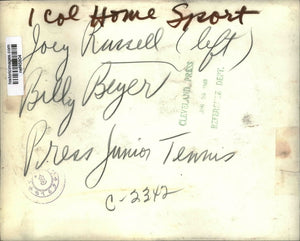 1 Col Home Sport
Joey Russell (left)
Billy Beyer
Press Junior Tennis
C-2342
CLEVELAND PRESS
REFERENCE DEPT.